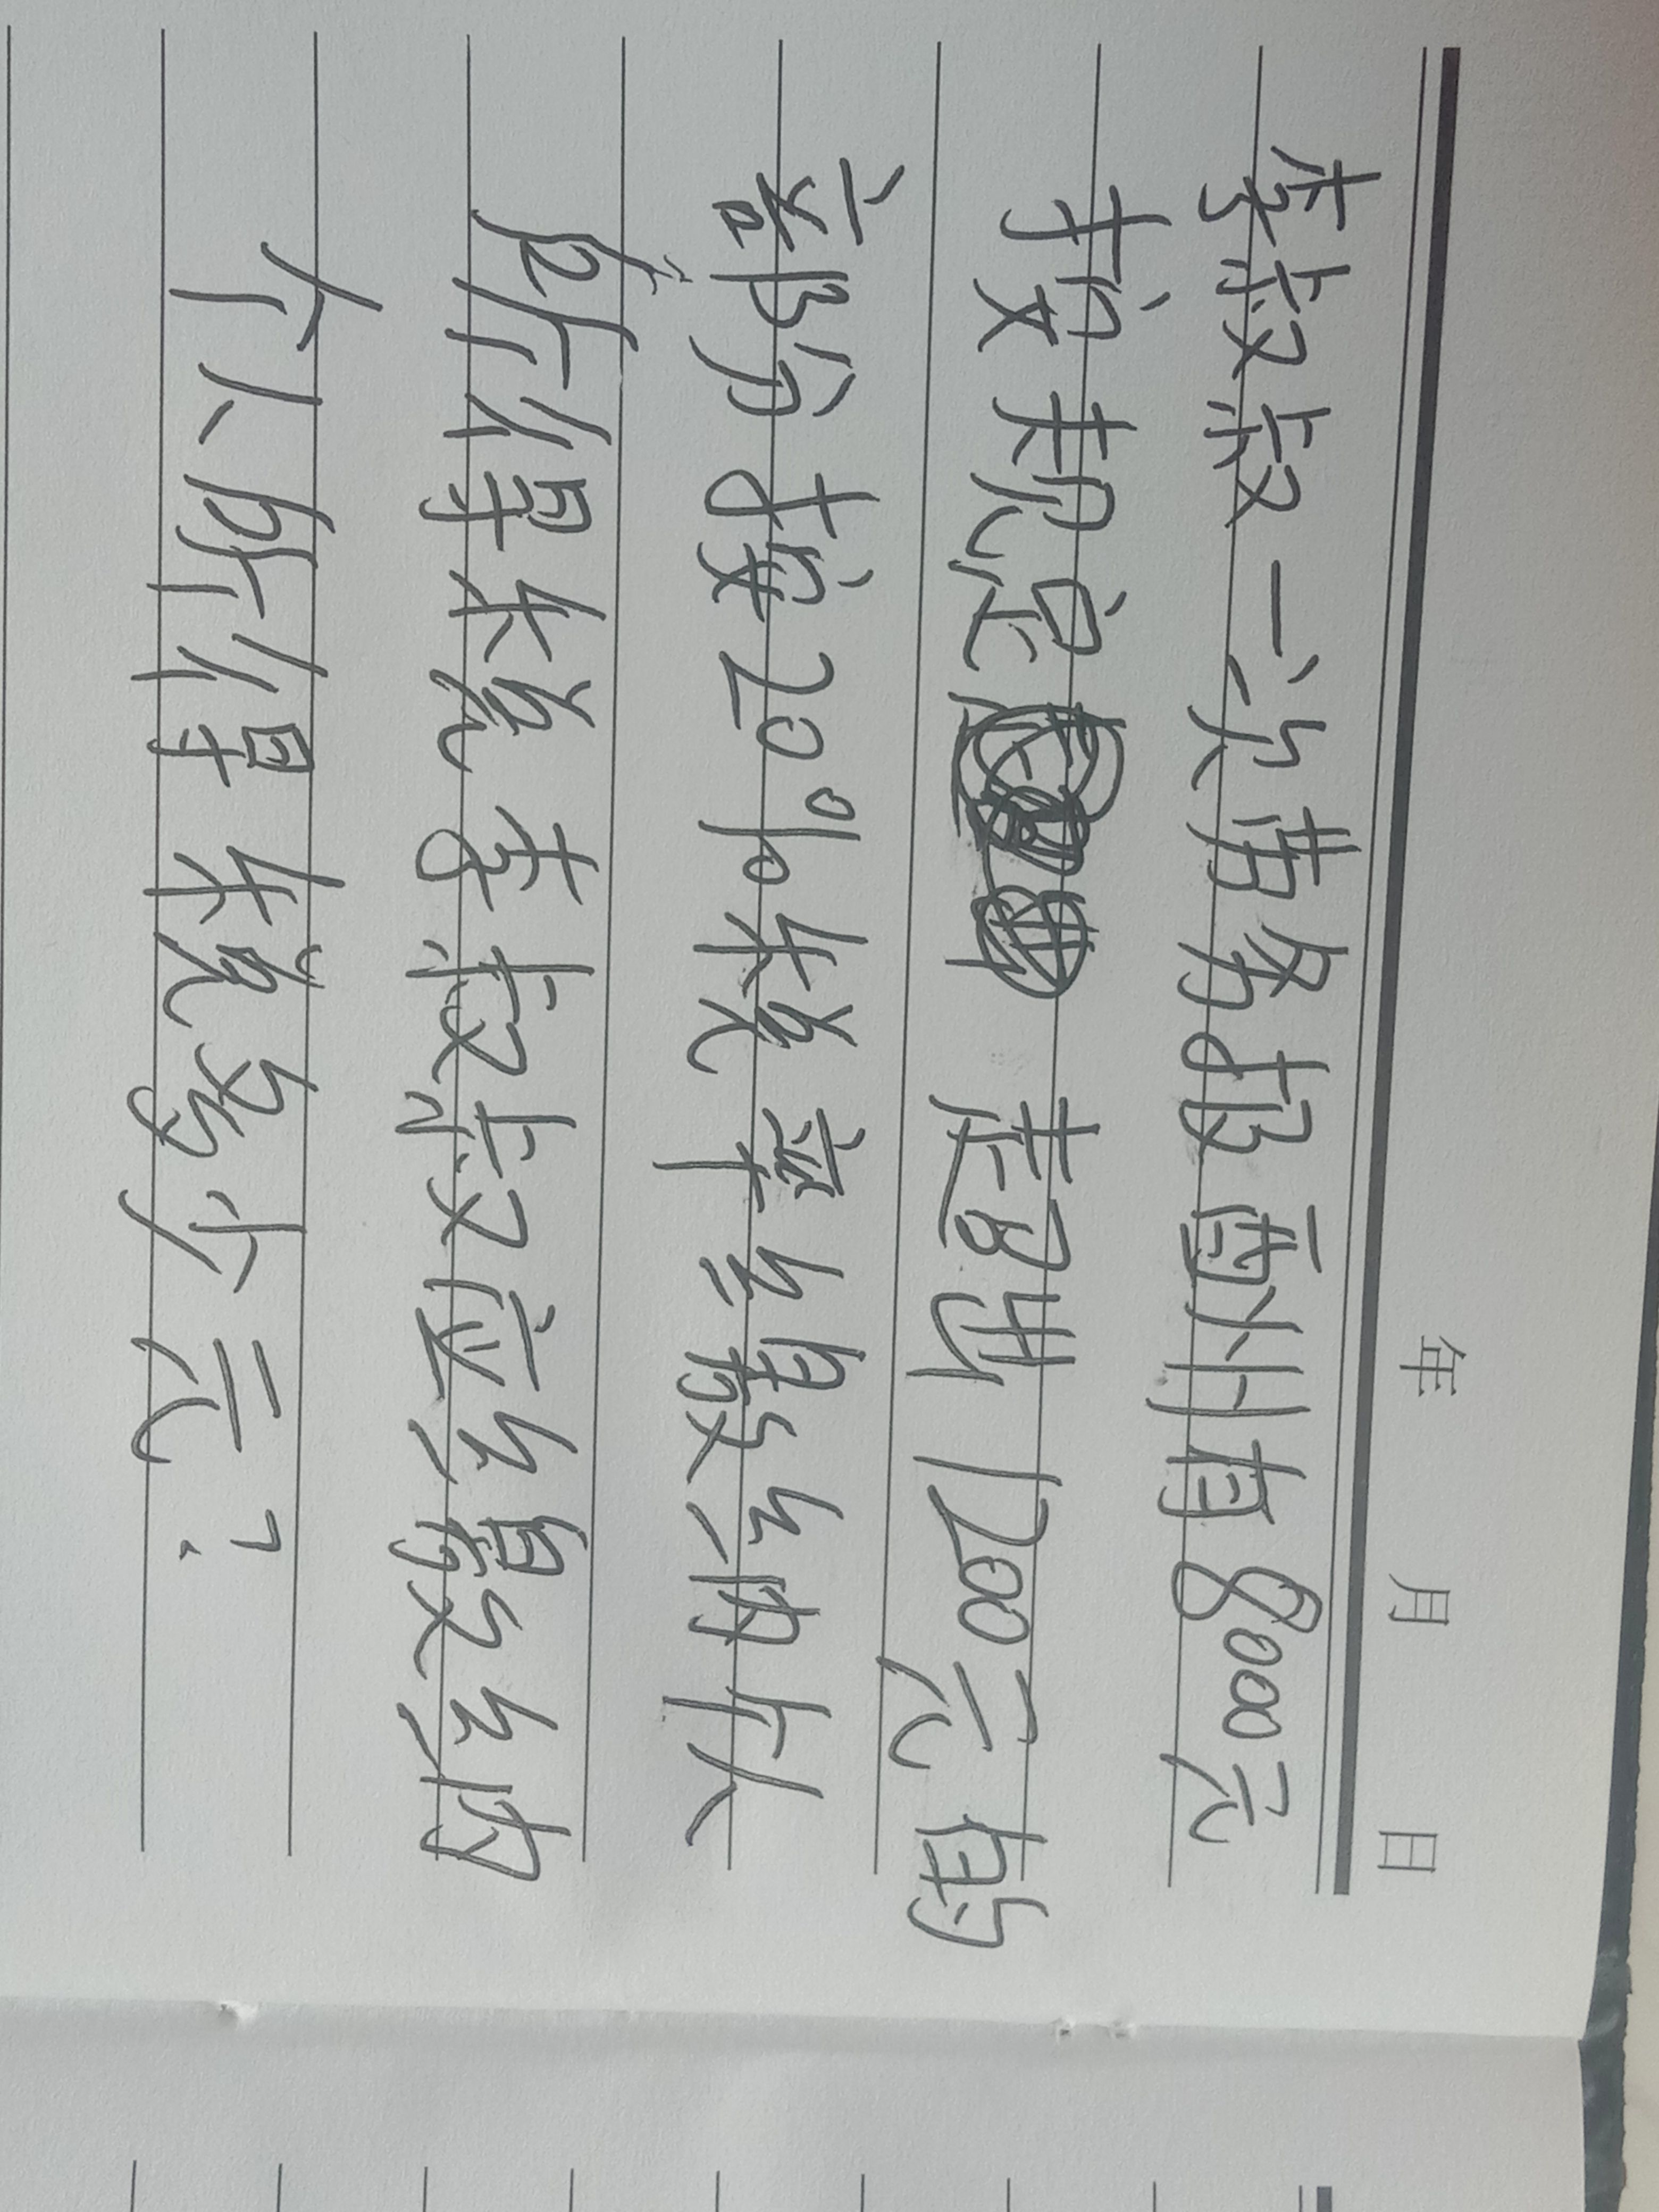 年 月 日
李叔叔一次劳务报酬有8000元
按规定 超出1200元的
部分按20%税率缴纳个人
所得税李叔叔应缴纳
个人所得税多少元?